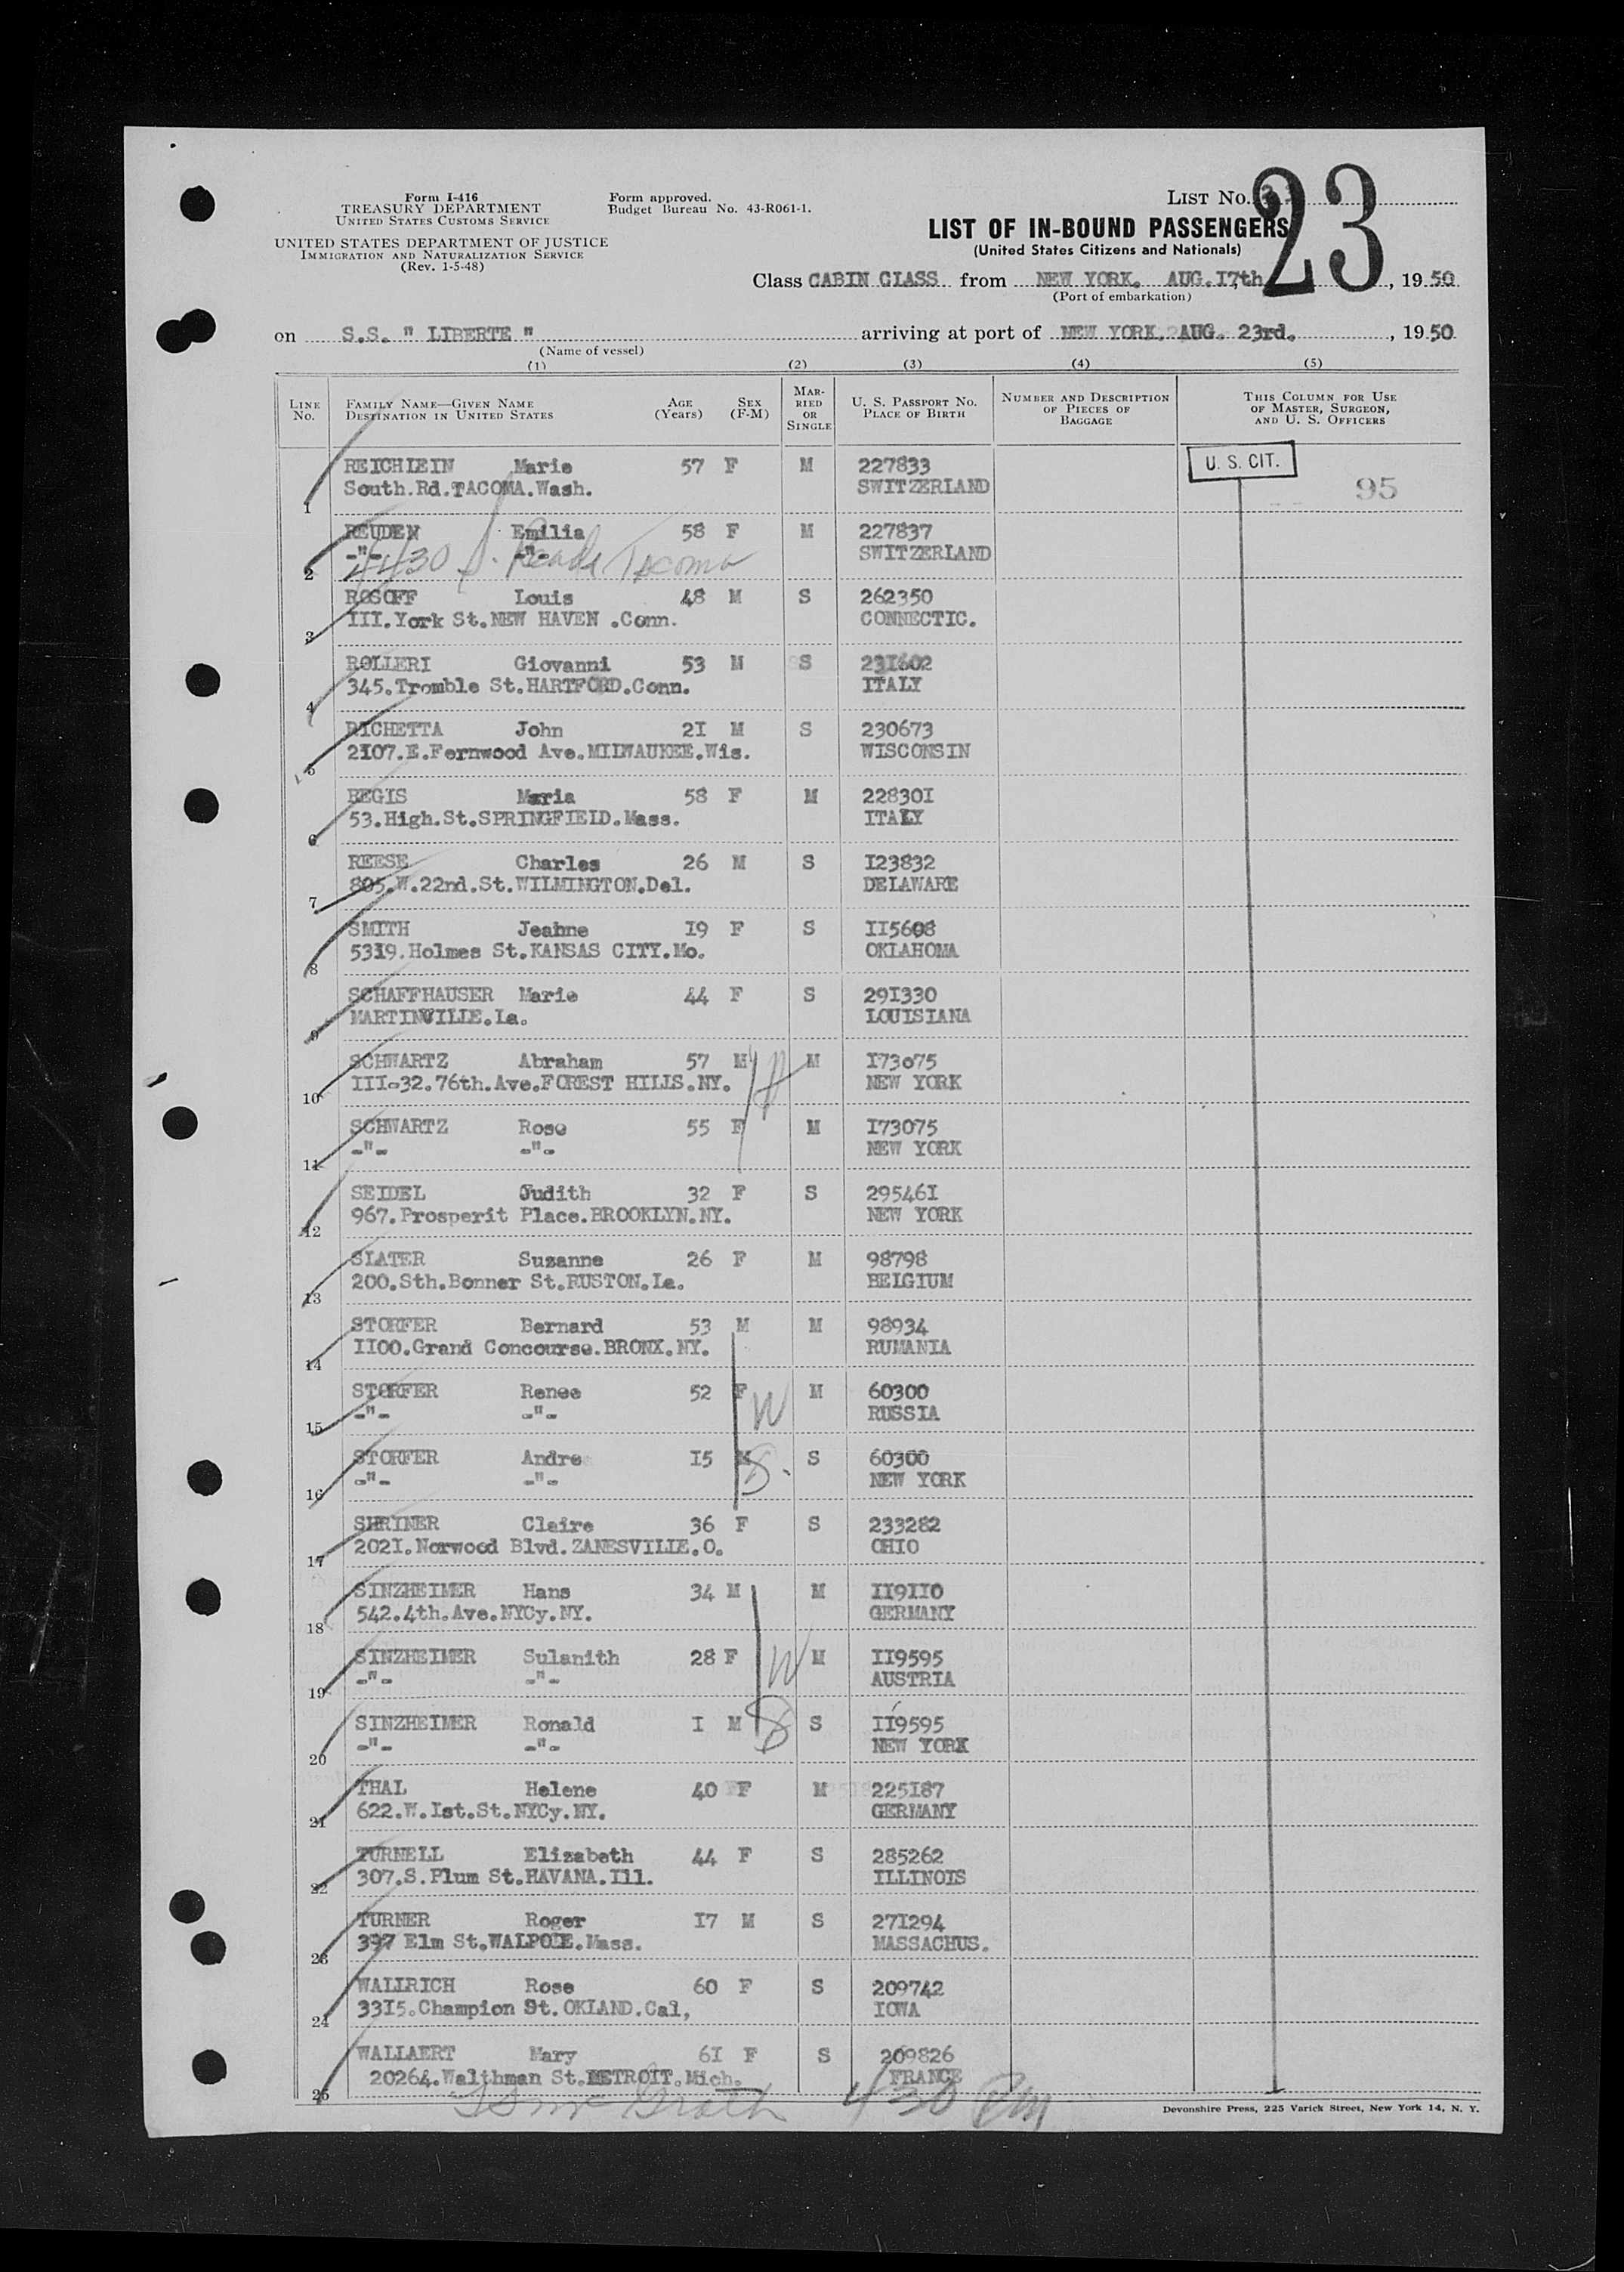 Form I-416
TREASURY DEPARTMENT
UNITED STATES CUSTOMS SERVICE
UNITED STATES DEPARTMENT OF JUSTICE
IMMIGRATION AND NATURALIZATION SERVICE
(Rev. 1-5-48)
Form approved.
Budget Bureau No. 43-R061-1.
LIST NO.
23
LIST OF IN-BOUND PASSENGERS
(United States Citizens and Nationals)
Class CABIN CLASS from NEW YORK. AUG.I7th, 1950
(Port of embarkation)
on S.S. " LIBERTE " arriving at port of NEW YORK. AUG. 23rd., 1950
(Name of vessel)
(1) (2) (3) (4) (5)
LINE NO. FAMILY NAME—GIVEN NAME DESTINATION IN UNITED STATES AGE (Years) SEX (F-M) MARRIED OR SINGLE U. S. PASSPORT NO. PLACE OF BIRTH NUMBER AND DESCRIPTION OF PIECES OF BAGGAGE THIS COLUMN FOR USE OF MASTER, SURGEON, AND U. S. OFFICERS
REICHLEIN Marie 57 F M 227833 U. S. CIT.
1 South.Rd.TACOMA.Wash. SWITZERLAND 95
REUDEN Emilia 58 F M 227837
2 -"- -"- SWITZERLAND
4430 S. Tacoma
ROSOFF Louis 48 M S 262350
3 III.York St.NEW HAVEN .Conn. CONNECTIC.
ROLLERI Giovanni 53 M S 23I602
4 345.Tromble St.HARTFORD.Conn. ITALY
RICHETTA John 2I M S 230673
5 2I07.E.Fernwood Ave.MILWAUKEE.Wis. WISCONSIN
REGIS Maria 58 F M 22830I
6 53.High.St.SPRINGFIELD.Mass. ITALY
REESE Charles 26 M S I23832
7 805.W.22nd.St.WILMINGTON.Del. DELAWARE
SMITH Jeahne I9 F S II5608
8 53I9.Holmes St.KANSAS CITY.Mo. OKLAHOMA
SCHAFFHAUSER Marie 44 F S 29I330
9 MARTINVILLE.La. LOUISIANA
SCHWARTZ Abraham 57 M M I73075
10 III-32.76th.Ave.FOREST HILLS.NY. NEW YORK
SCHWARTZ Rose 55 F M I73075
11 -"- -"- NEW YORK
SEIDEL Judith 32 F S 29546I
12 967.Prosperit Place.BROOKLYN.NY. NEW YORK
SLATER Suzanne 26 F M 98798
13 200.Sth.Bonner St.RUSTON.La. BELGIUM
STORFER Bernard 53 M M 98934
14 II00.Grand Concourse.BRONX.NY. RUMANIA
STORFER Renee 52 F W M 60300
15 -"- -"- RUSSIA
STORFER Andre I5 M S. S 60300
16 -"- -"- NEW YORK
SHRINER Claire 36 F S 233282
17 202I.Norwood Blvd.ZANESVILLE.O. OHIO
SINZHEIMER Hans 34 M M II9II0
18 542.4th.Ave.NYCy.NY. GERMANY
SINZHEIMER Sulanith 28 F W M II9595
19 -"- -"- AUSTRIA
SINZHEIMER Ronald I M S S II9595
20 -"- -"- NEW YORK
THAL Helene 40 F M 225I87
21 622.W.Ist.St.NYCy.NY. GERMANY
TURNELL Elizabeth 44 F S 285262
22 307.S.Plum St.HAVANA.Ill. ILLINOIS
TURNER Roger I7 M S 27I294
23 397 Elm St.WALPOLE.Mass. MASSACHUS.
WALLRICH Rose 60 F S 209742
24 33I5.Champion St.OKLAND.Cal, IOWA
WALLAERT Mary 6I F S 209826
25 20264.Walthman St.DETROIT.Mich. FRANCE
430 Pm
Devonshire Press, 225 Varick Street, New York 14, N. Y.